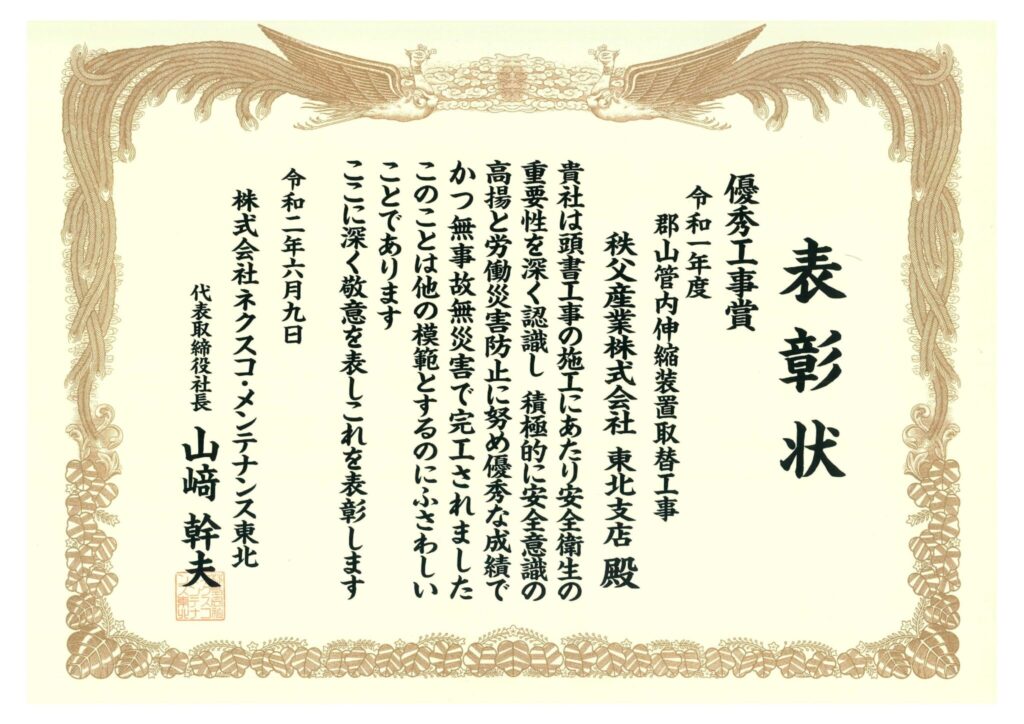 表彰状
優秀工事賞
令和一年度
郡山管内伸縮装置取替工事
秩父産業株式会社 東北支店 殿
貴社は頭書工事の施工にあたり安全衛生の
重要性を深く認識し 積極的に安全意識の
高揚と労働災害防止に努め優秀な成績で
かつ無事故無災害で完工されました
このことは他の模範とするのにふさわしい
ことであります
ここに深く敬意を表しこれを表彰します
令和二年六月九日
株式会社ネクスコ・メンテナンス東北
代表取締役社長 山﨑 幹夫